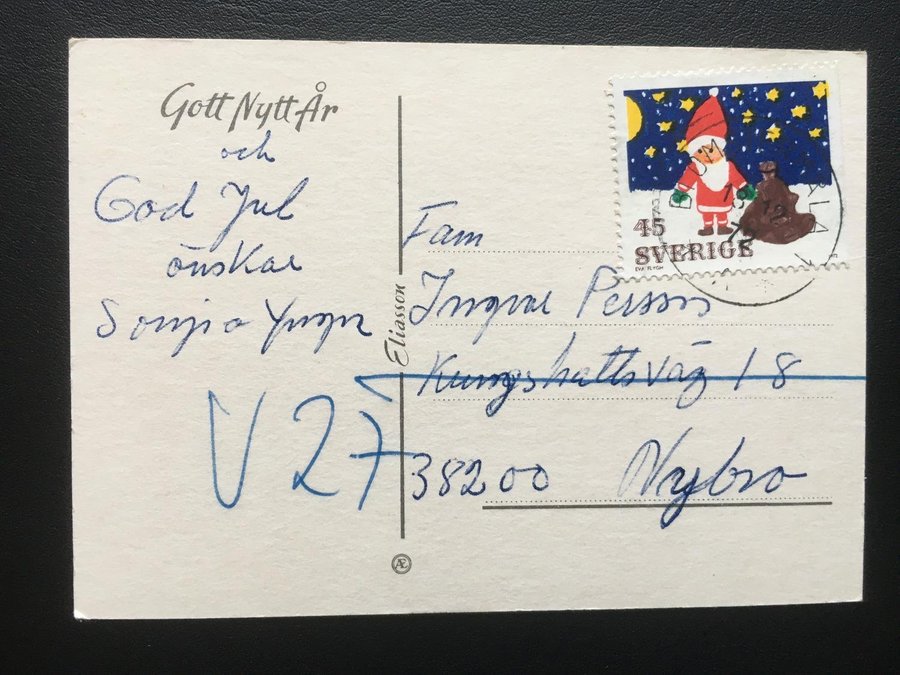 Gott Nytt År
och
God Jul
önskar
Sonja Yngve
V 27
Eliasson
Æ
45
SVERIGE
EVA FLYGH
Fam
Ingvar Persson
Kungshattsväg 18
38200 Nybro